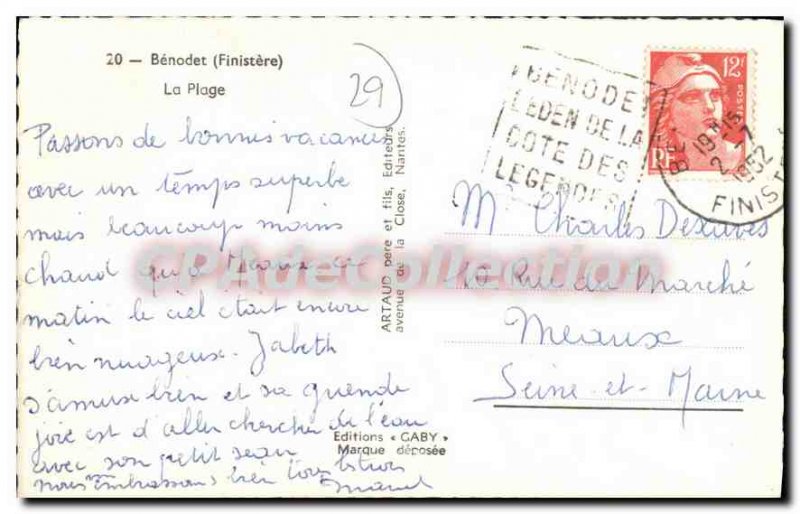 20 — Bénodet (Finistère)
La Plage
29
Passons de bonnes vacances
avec un temps superbe
mais beaucoup moins
chaud qu'à Meaux. ce
matin le ciel était encore
bien nuageux. Zabeth
s'amuse bien et sa grande
joie est d'aller chercher de l'eau
avec son petit seau
nous embrassons bien tous
ARTAUD père et fils, Editeurs
avenue de la Close, Nantes.
Editions « GABY »
Marque déposée
BENODET
L'EDEN DE LA
COTE DES
LEGENDES
12F
POSTES
RF
19H15
2-7
1952
FINIST
Mr Charles
19 Rue du Marché
Meaux
Seine-et-Marne
CPArteCollection